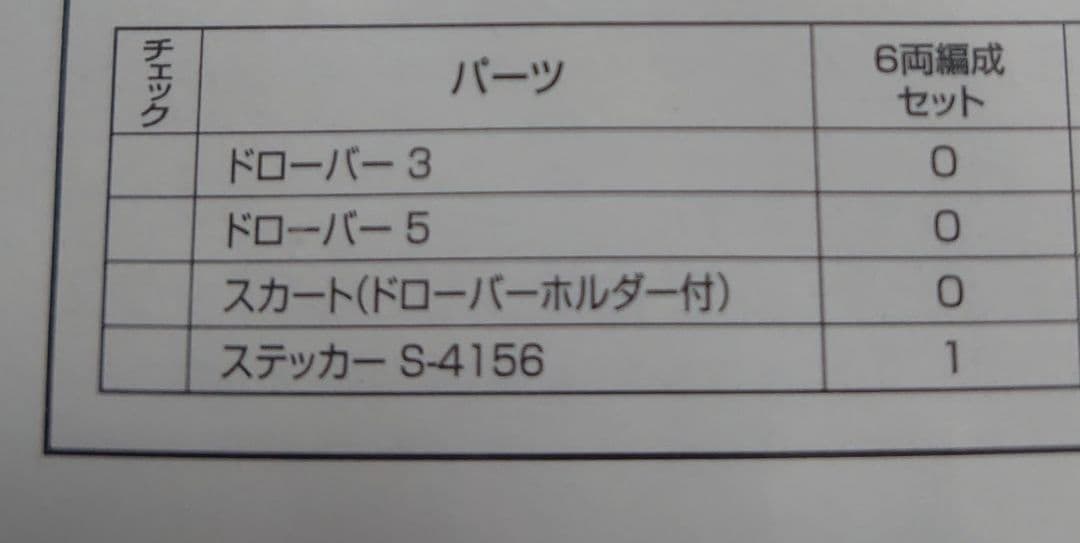 チェック
パーツ
6両編成
セット
ドローバー 3
0
ドローバー 5
0
スカート(ドローバーホルダー付)
0
ステッカー S-4156
1